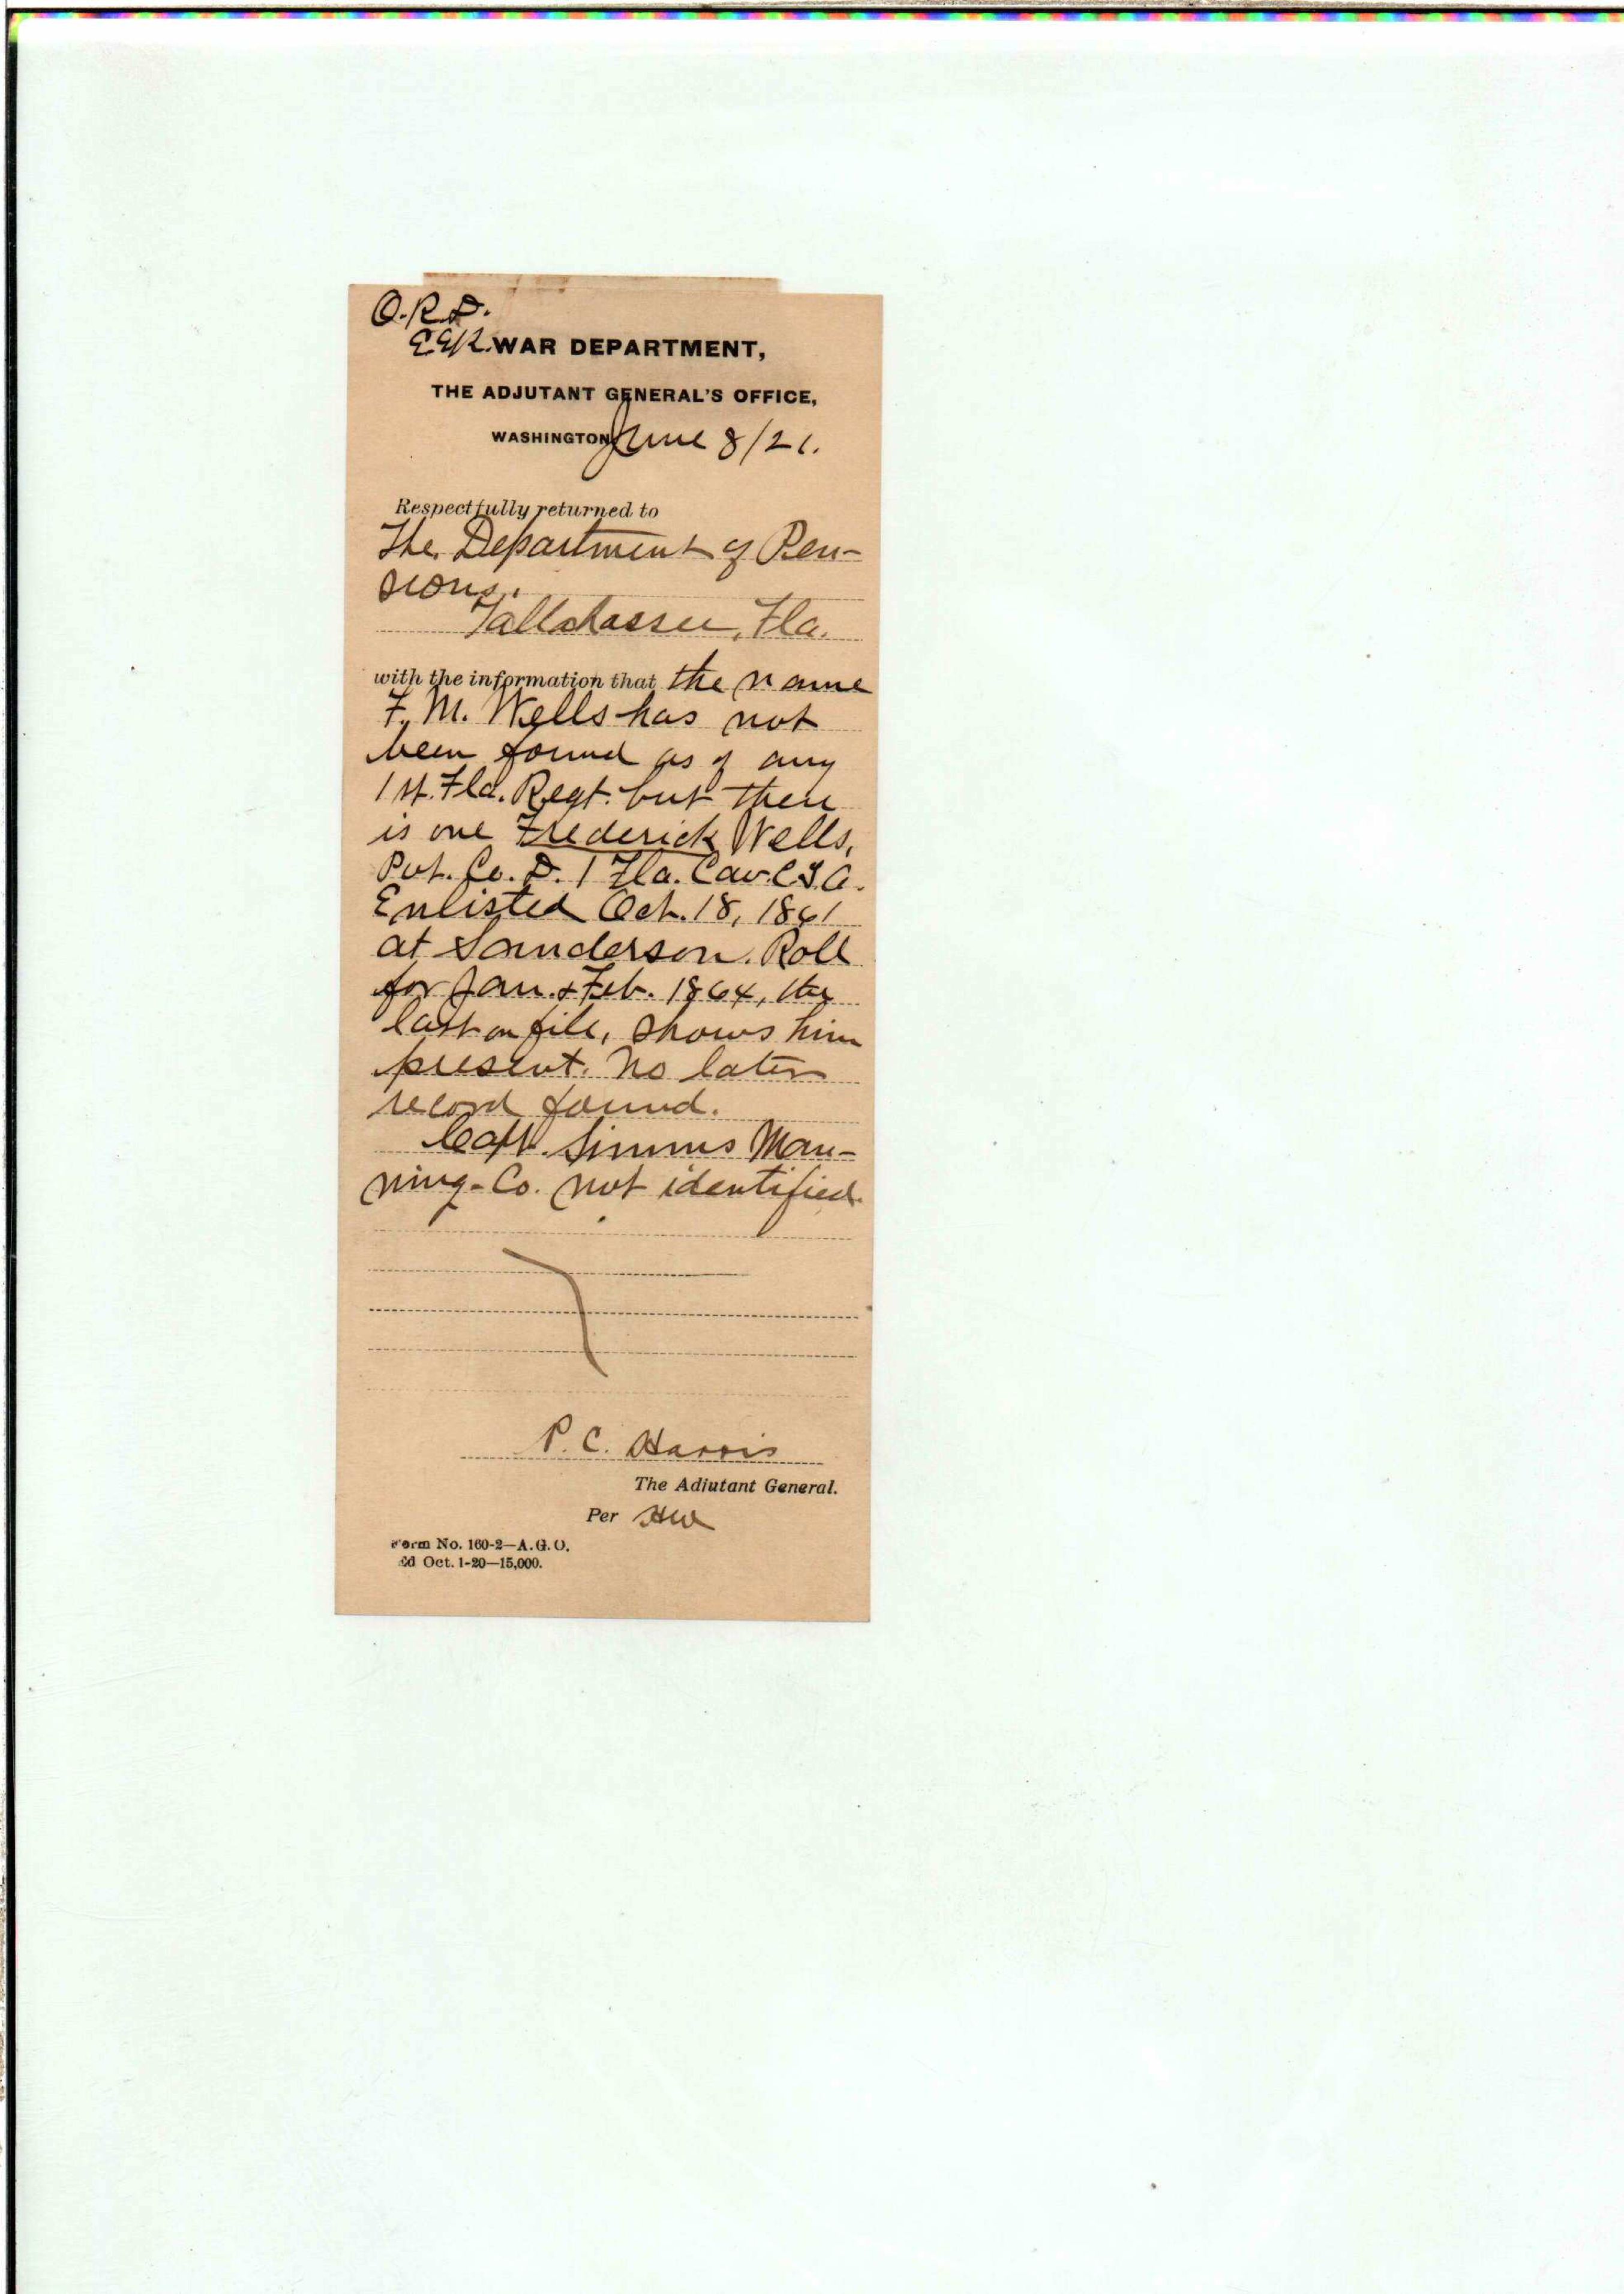 O.R.D.
EER. WAR DEPARTMENT,
THE ADJUTANT GENERAL'S OFFICE,
WASHINGTON June 8/21.
Respectfully returned to
The Department of Pen-
sions,
Tallahassee, Fla.
with the information that the name
F. M. Wells has not
been found as of any
1st. Fla. Regt. but there
is one Frederick Wells,
Pvt. Co. D. 1 Fla. Cav. C.S.A.
Enlisted Oct. 18, 1861
at Sanderson. Roll
for Jan. & Feb. 1864, the
last on file, shows him
present. No later
record found.
Capt. Simms Man-
ning-Co. not identified.
P. C. Harris
The Adjutant General.
Per HW
Form No. 160-2—A.G.O.
Ed Oct. 1-20—15,000.